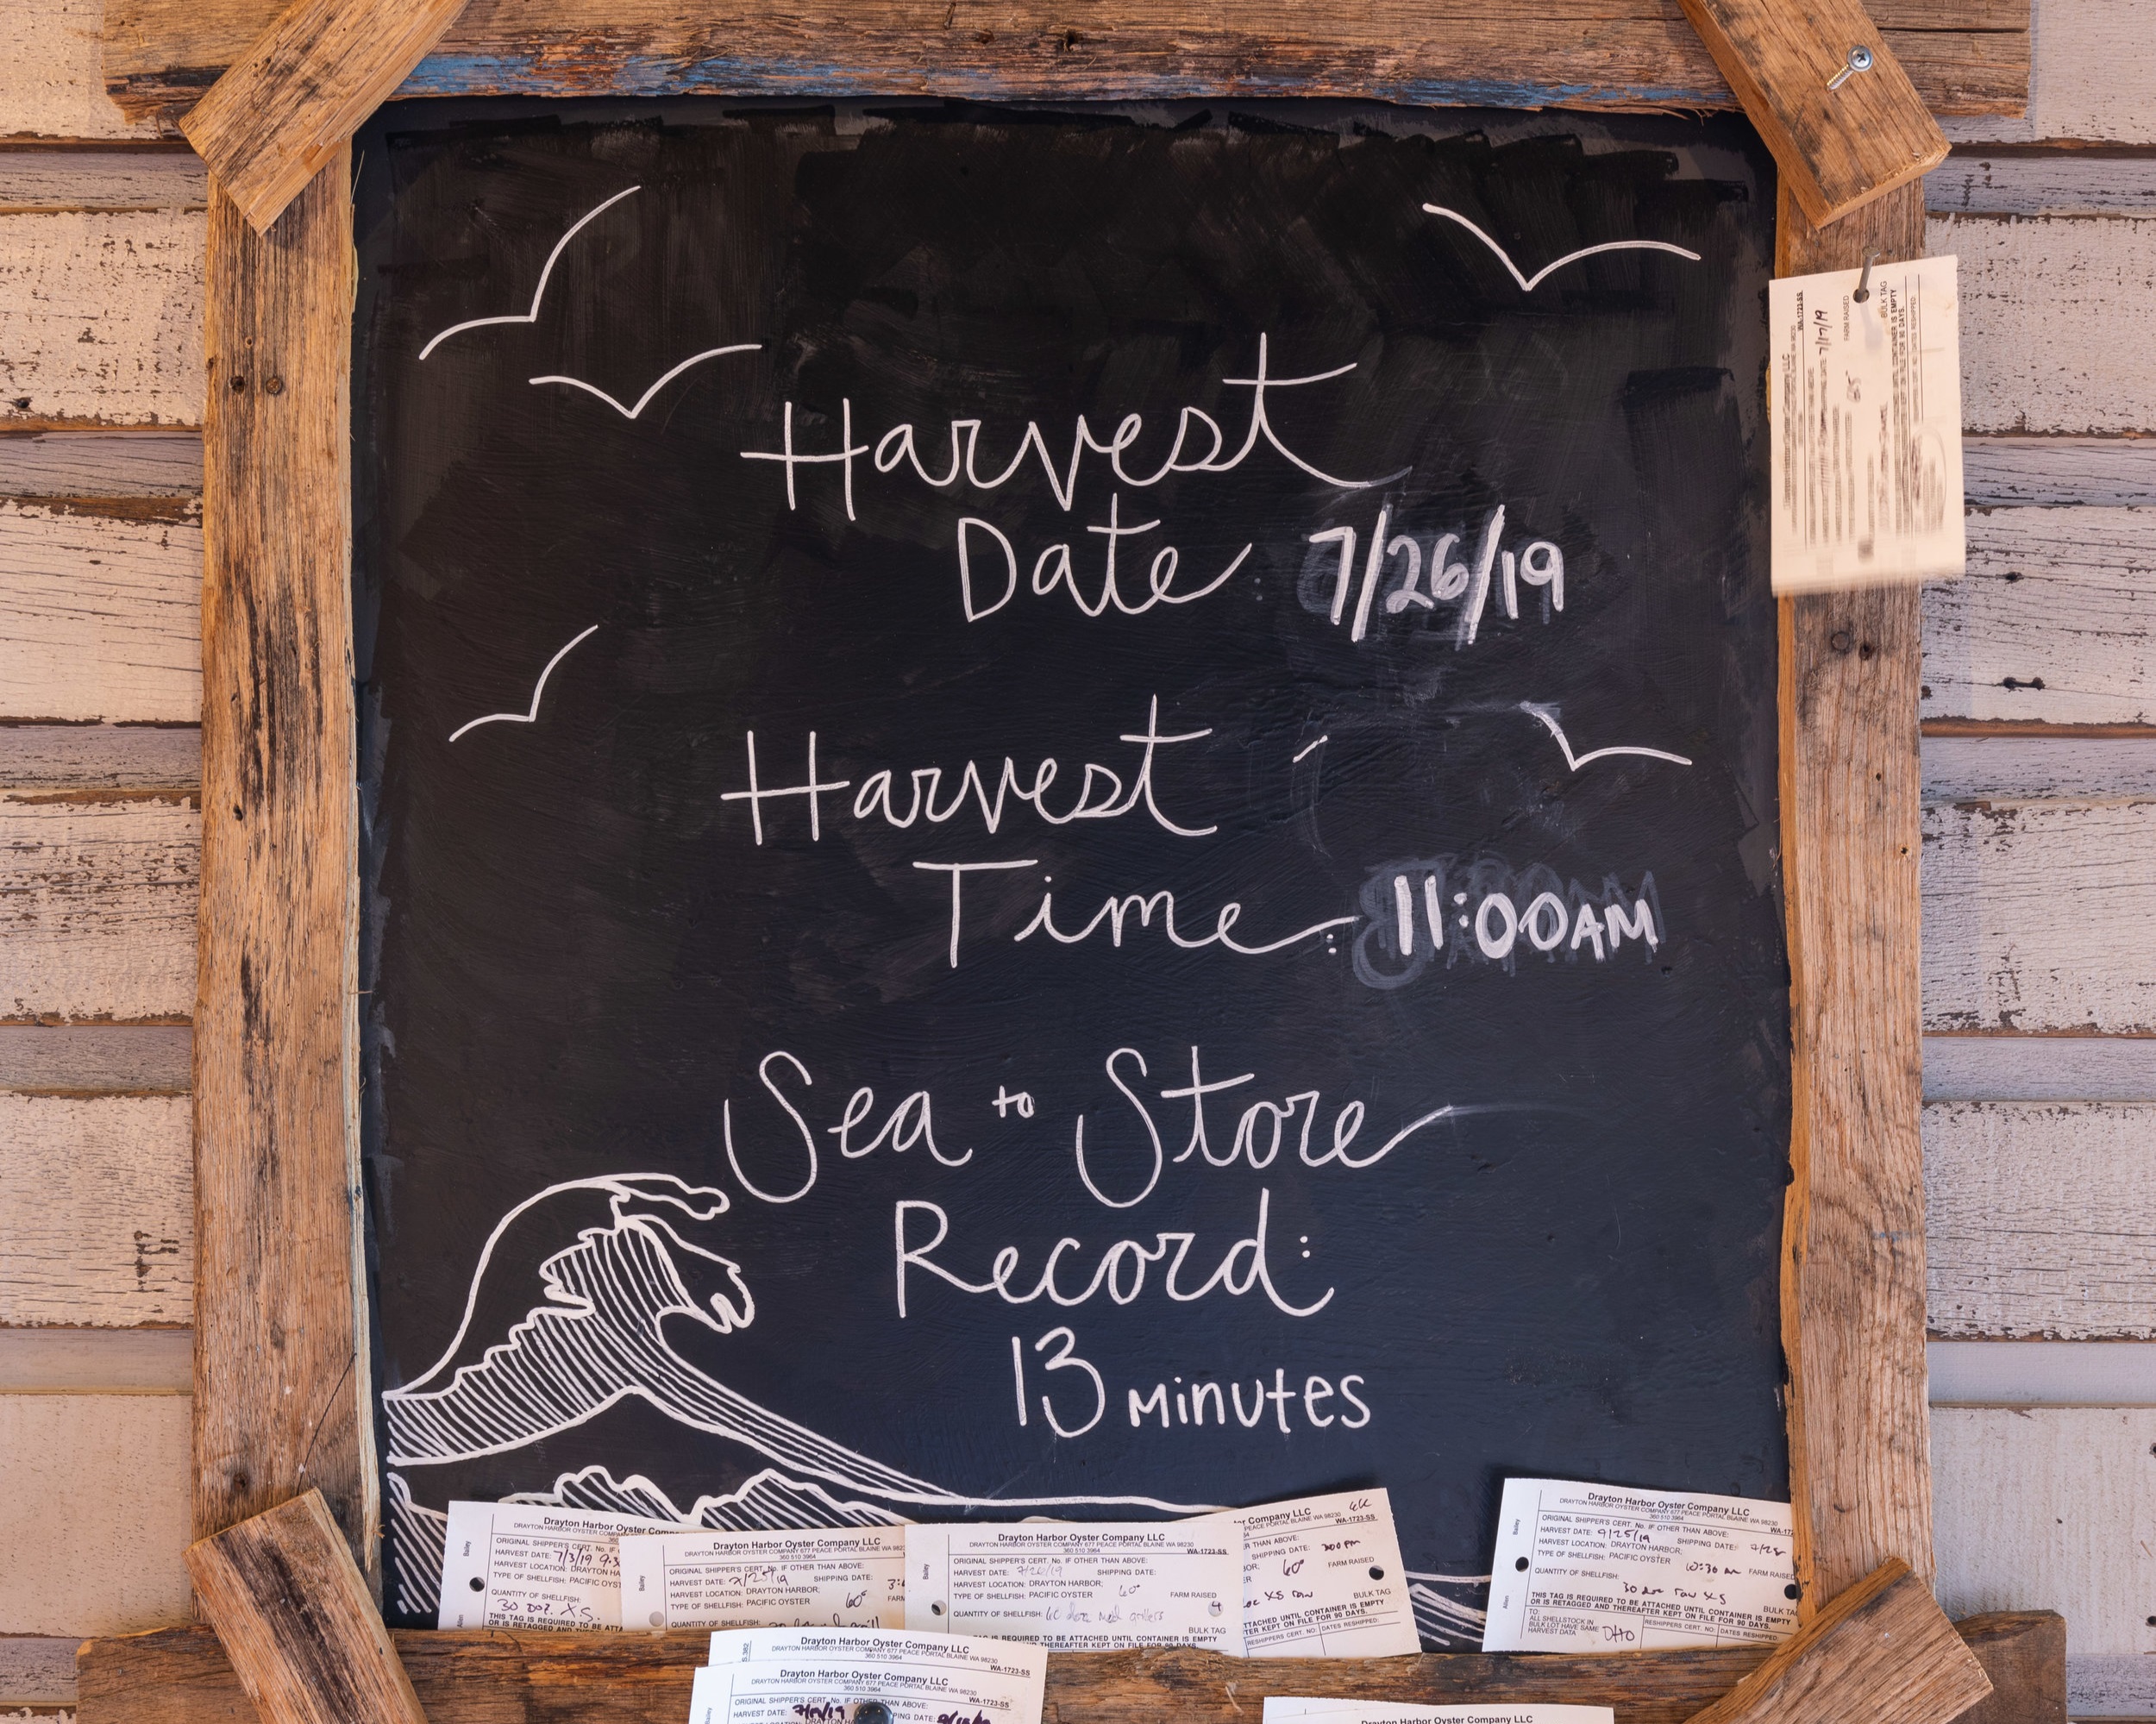 Harvest
Date : 7/26/19
Harvest
Time : 11:00AM
Sea to Store
Record:
13 Minutes
WA-1723-SS
7/17/19
FARM RAISED
BULK TAG
65°
Drayton Harbor Oyster Compan
ORIGINAL SHIPPER'S CERT. No. IF
HARVEST DATE: 7/3/19 9:3
HARVEST LOCATION: DRAYTON H
TYPE OF SHELLFISH: PACIFIC OYST
QUANTITY OF SHELLFISH:
30 DOZ. XS.
THIS TAG IS REQUIRED TO BE ATTA
Drayton Harbor Oyster Company LLC
DRAYTON HARBOR OYSTER COMPANY 677 PEACE PORTAL BLAINE WA 9823
360 510 3964
ORIGINAL SHIPPER'S CERT. No. IF OTHER THAN ABOVE:
HARVEST DATE: SHIPPING DATE:
HARVEST LOCATION: DRAYTON HARBOR;
TYPE OF SHELLFISH: PACIFIC OYSTER 60° FARM
QUANTITY OF SHELLFISH:
Drayton Harbor Oyster Company LLC
DRAYTON HARBOR OYSTER COMPANY 677 PEACE PORTAL BLAINE WA 98230
360 510 3964
WA-1723-SS
ORIGINAL SHIPPER'S CERT. No. IF OTHER THAN ABOVE:
HARVEST DATE: SHIPPING DATE:
HARVEST LOCATION: DRAYTON HARBOR;
TYPE OF SHELLFISH: PACIFIC OYSTER 60° FARM RAISED
QUANTITY OF SHELLFISH: 60 doz med grillers
BULK TAG
IS REQUIRED TO BE ATTACHED UNTIL CONTAINER IS EMPTY
THEREAFTER KEPT ON FILE FOR 90 DAYS.
PEACE PORTAL BLAINE WA 98230
WA-1723-SS
ABOVE:
SHIPPING DATE: 300 pm
60° FARM RAISED
XS raw
BULK TAG
TTACHED UNTIL CONTAINER IS EMPTY
TER KEPT ON FILE FOR 90 DAYS.
RESHIPPERS CERT. NO: DATES RESHIPPED:
Drayton Harbor Oyster Company LLC
DRAYTON HARBOR OYSTER COMPANY 677 PEACE PORTAL BLAINE WA 98230
360 510 3964
WA-17
ORIGINAL SHIPPER'S CERT. No. IF OTHER THAN ABOVE:
HARVEST DATE:
HARVEST LOCATION: DRAYTON HARBOR;
TYPE OF SHELLFISH: PACIFIC OYSTER 10:30 am FARM RAISED
QUANTITY OF SHELLFISH:
30 doz raw XS
BULK TA
THIS TAG IS REQUIRED TO BE ATTACHED UNTIL CONTAINER IS EMPTY
OR IS RETAGGED AND THEREAFTER KEPT ON FILE FOR 90 DAYS.
TO:
ALL SHELLSTOCK IN
BULK LOT HAVE SAME
HARVEST DATA
DHO
RESHIPPERS CERT. NO: DATES RESHIPPED:
Drayton Harbor Oyster Company LLC
DRAYTON HARBOR OYSTER COMPANY 677 PEACE PORTAL BLAINE WA 98230
360 510 3964
WA-1723-SS
Drayton Harbor Oyster Company LLC
DRAYTON HARBOR OYSTER COMPANY 677 PEACE PORTAL BLAINE WA 98230
360 510 3964
WA-1723-SS
ORIGINAL SHIPPER'S CERT. No. IF OTHER THAN ABOVE:
HARVEST DATE:
Drayton Harbor Oyster Company LLC